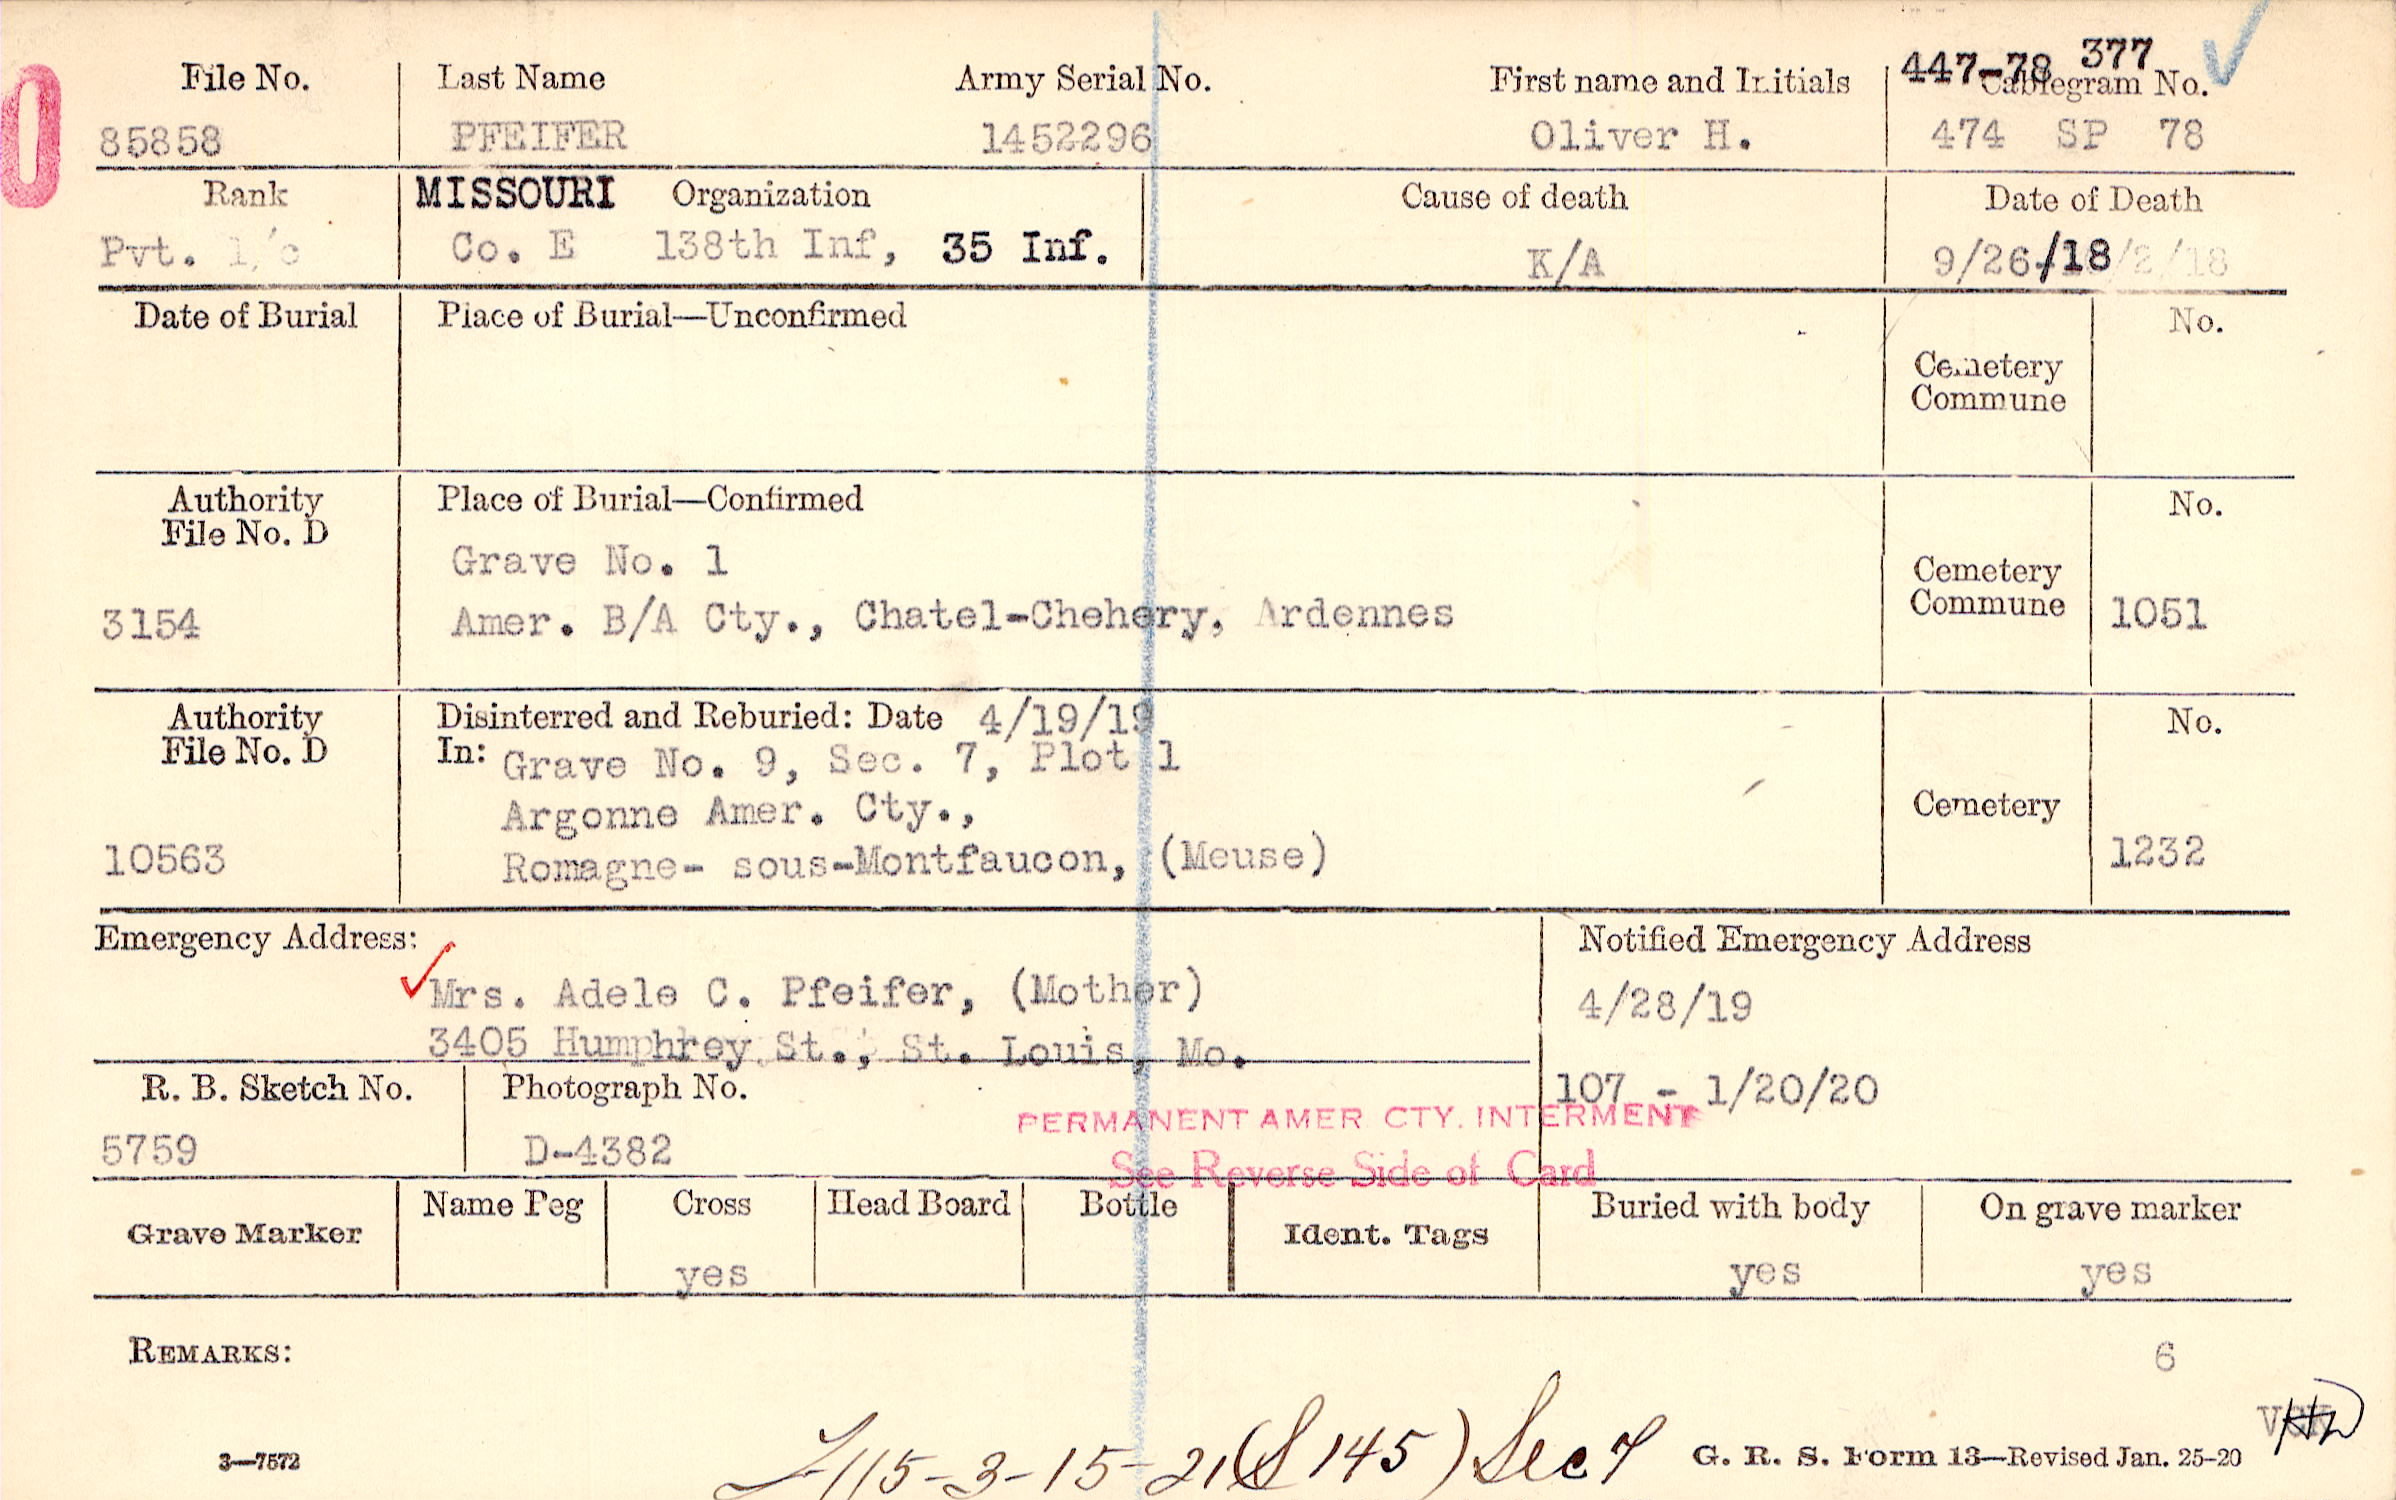 447-78 377
File No. Last Name Army Serial No. First name and Initials Cablegram No.
85858 PFEIFER 1452296 Oliver H. 474 SP 78
Rank MISSOURI Organization Cause of death Date of Death
Pvt. 1/c Co. E 138th Inf, 35 Inf. K/A 9/26/18 /2/18
Date of Burial Place of Burial—Unconfirmed No.
Cemetery
Commune
Authority Place of Burial—Confirmed No.
File No. D
Grave No. 1
Cemetery
3154 Amer. B/A Cty., Chatel-Chehery, Ardennes Commune 1051
Authority Disinterred and Reburied: Date 4/19/19 No.
File No. D In: Grave No. 9, Sec. 7, Plot 1
Argonne Amer. Cty., Cemetery
10563 Romagne- sous-Montfaucon, (Meuse) 1232
Emergency Address: Notified Emergency Address
Mrs. Adele C. Pfeifer, (Mother) 4/28/19
3405 Humphrey St., St. Louis, Mo.
R. B. Sketch No. Photograph No. 107 - 1/20/20
PERMANENT AMER CTY. INTERMENT
5759 D-4382
See Reverse Side of Card
Grave Marker Name Peg Cross Head Board Bottle Ident. Tags Buried with body On grave marker
yes yes yes
REMARKS: 6
115-3-15-21 (S 145) Sec 7
3—7572 G. R. S. Form 13—Revised Jan. 25-20